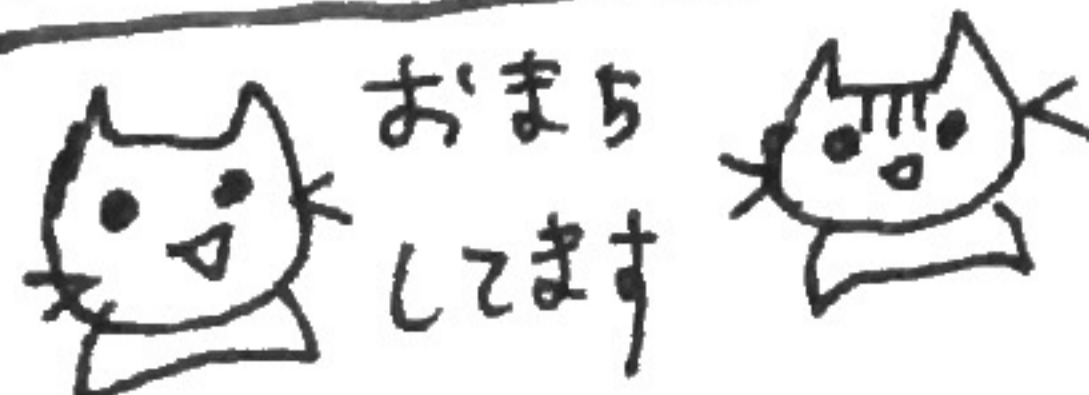 おまち
してます